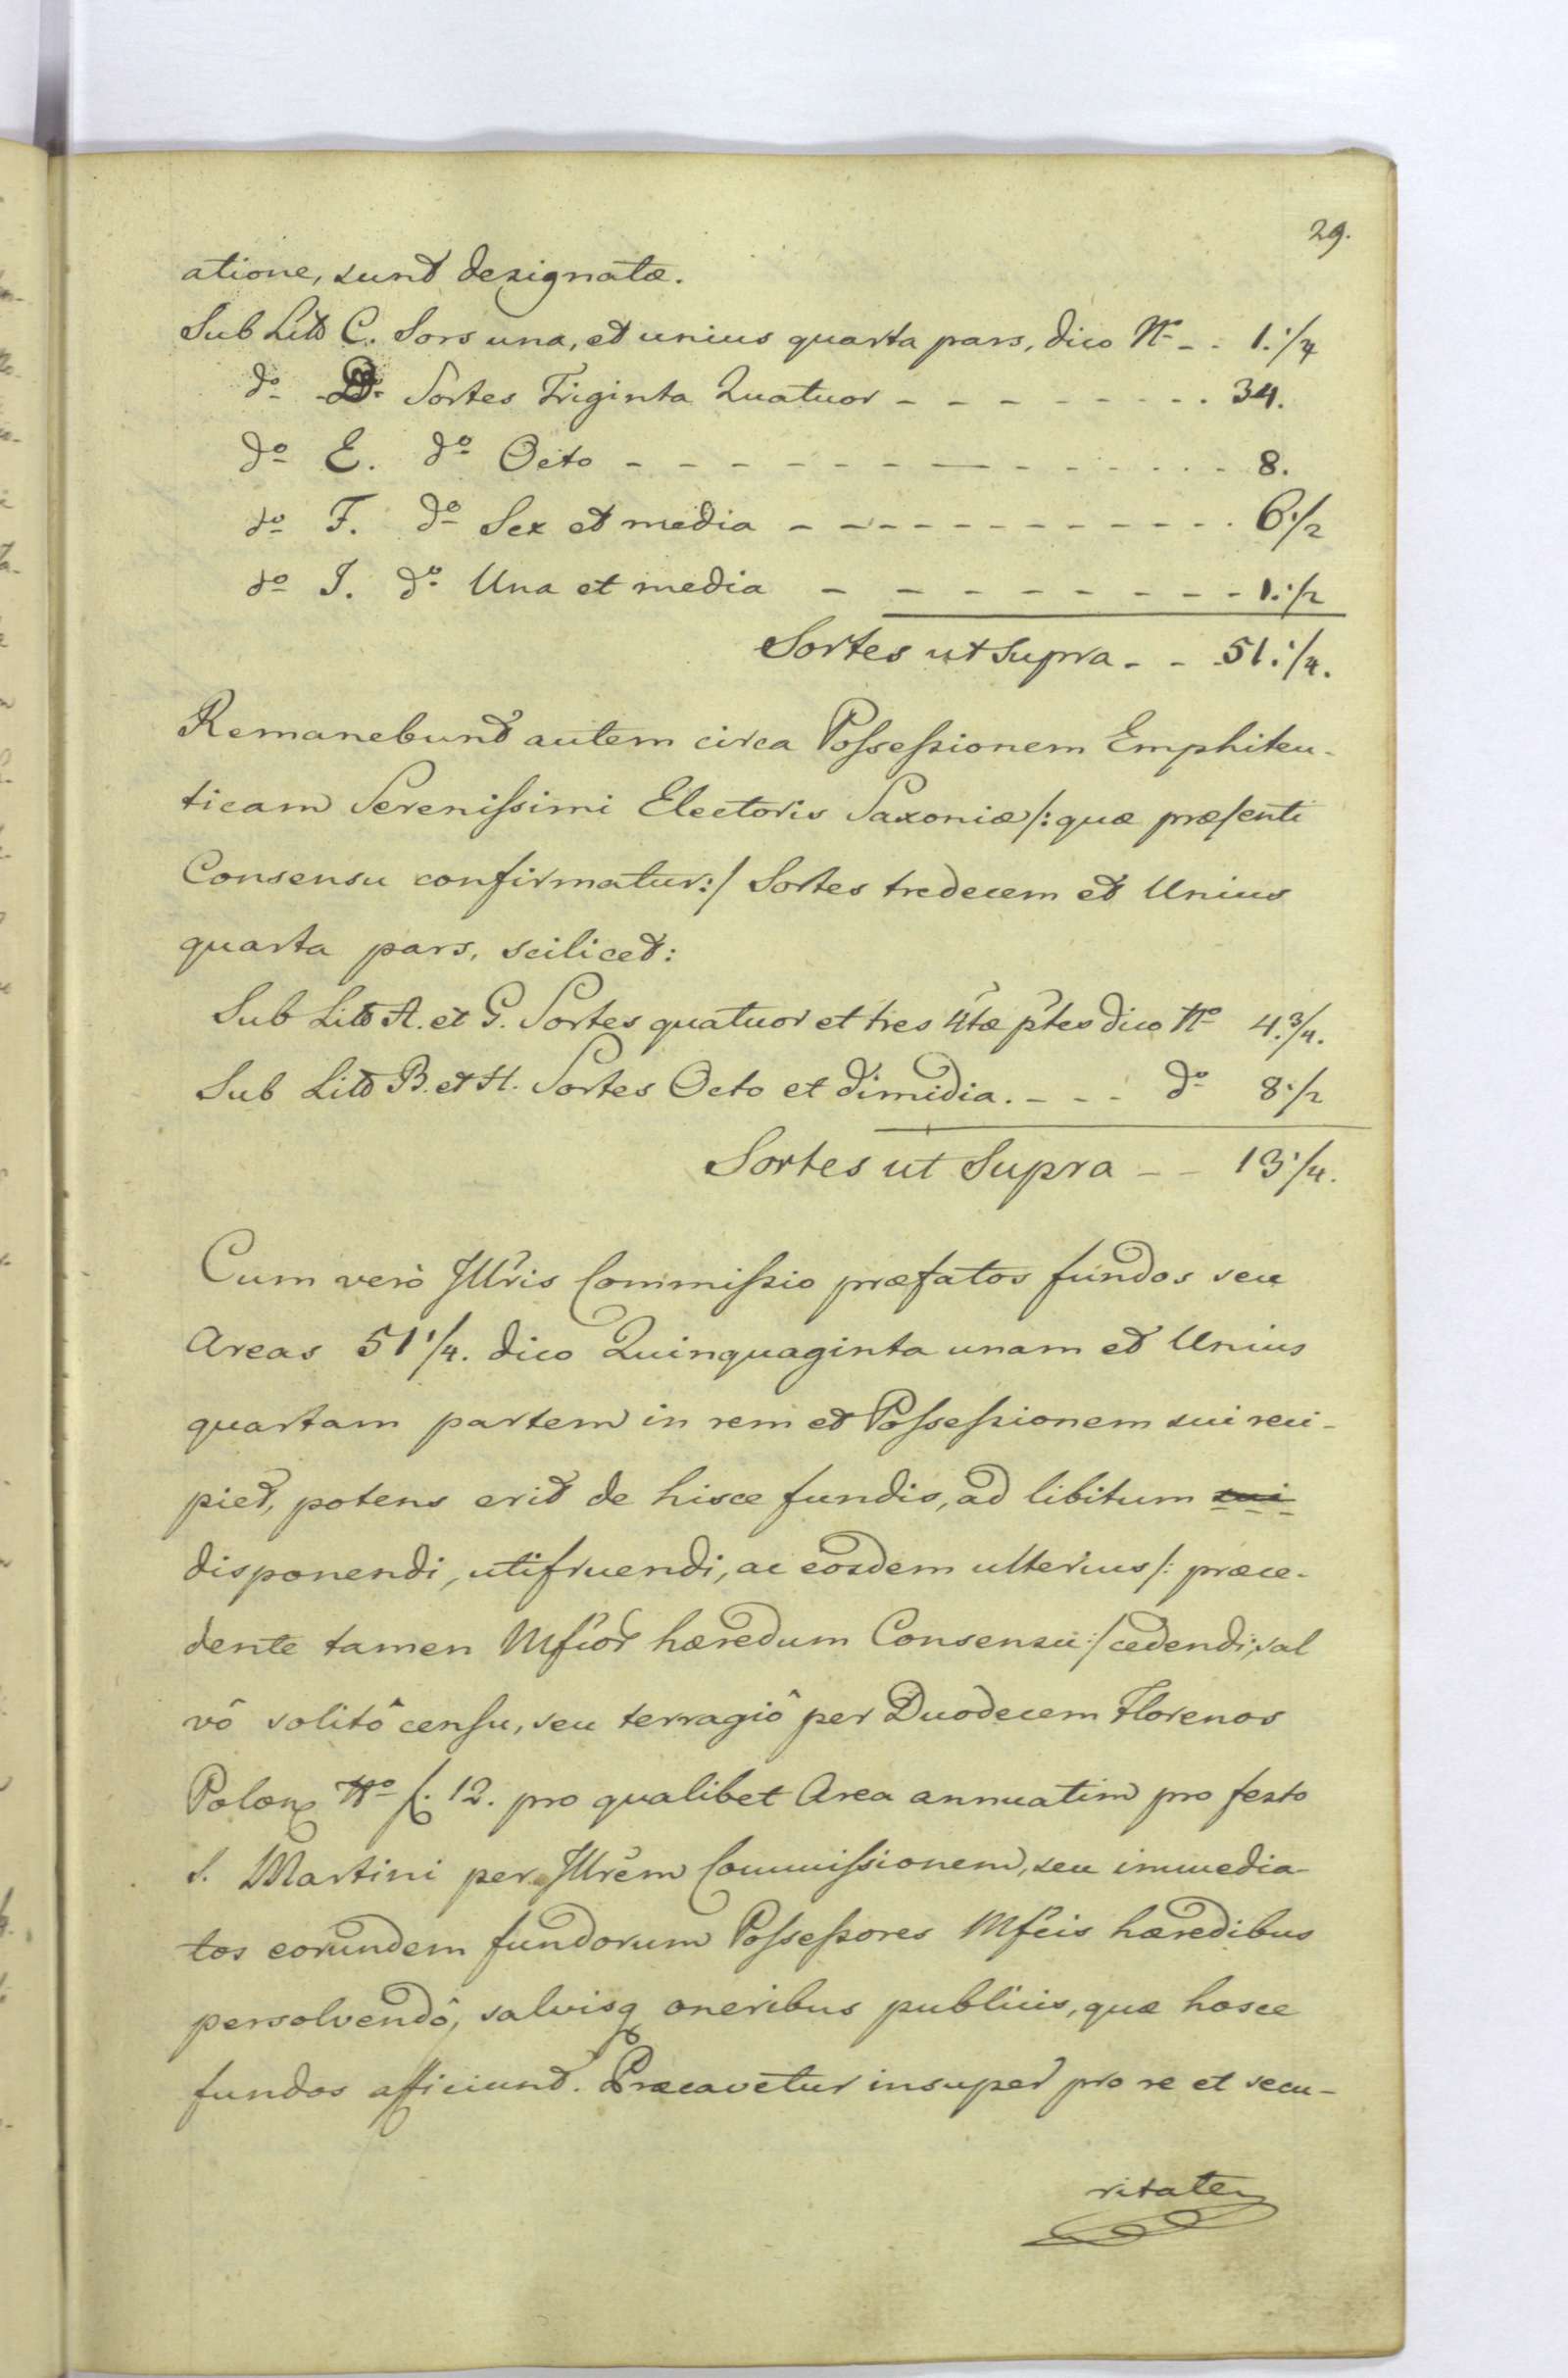 29.
atione, sunt designatæ.
Sub Litt C. Sors una, et unius quarta pars, dico No - - 1.1/4
do D. Sortes Triginta Quatuor - - - - - - - - - 34.
do E. do Octo - - - - - - - - - - - - - 8.
do F. do Sex et media - - - - - - - - - - - 6.1/2
do I. do Una et media - - - - - - - - - 1.1/2
Sortes ut supra - - 51.1/4.
Remanebunt autem circa Possessionem Emphiteu-
ticam Serenissimi Electoris Saxoniæ /: quæ præsenti
Consensu confirmatur :/ Sortes tredecem et Unius
quarta pars, scilicet:
Sub Litt A. et G. Sortes quatuor et tres 4tæ ptes dico No 4.3/4.
Sub Litt B. et H. Sortes Octo et dimidia. - - - do 8.1/2
Sortes ut Supra - - 13 1/4.
Cum verò Illris Commissio præfatos fundos seu
Areas 51 1/4. dico Quinquaginta unam et Unius
quartam partem in rem et Possessionem sui reci-
piet, potens erit de hisce fundis, ad libitum sui
disponendi, utifruendi, ac eosdem ulterius /: præce-
dente tamen Mfcor hæredum Consensu :/ cedendi, sal
vô solitô censu, seu terragiô per Duodecem Florenos
Polon No f. 12. pro qualibet Area annuatim pro festo
S. Martini per Illrem Commissionem, seu immedia-
tos eorundem fundorum Possessores Mfcis hæredibus
persolvendô, salvisq oneribus publicis, quæ hosce
fundos afficiunt. Præcavetur insuper pro re et secu-
ritate